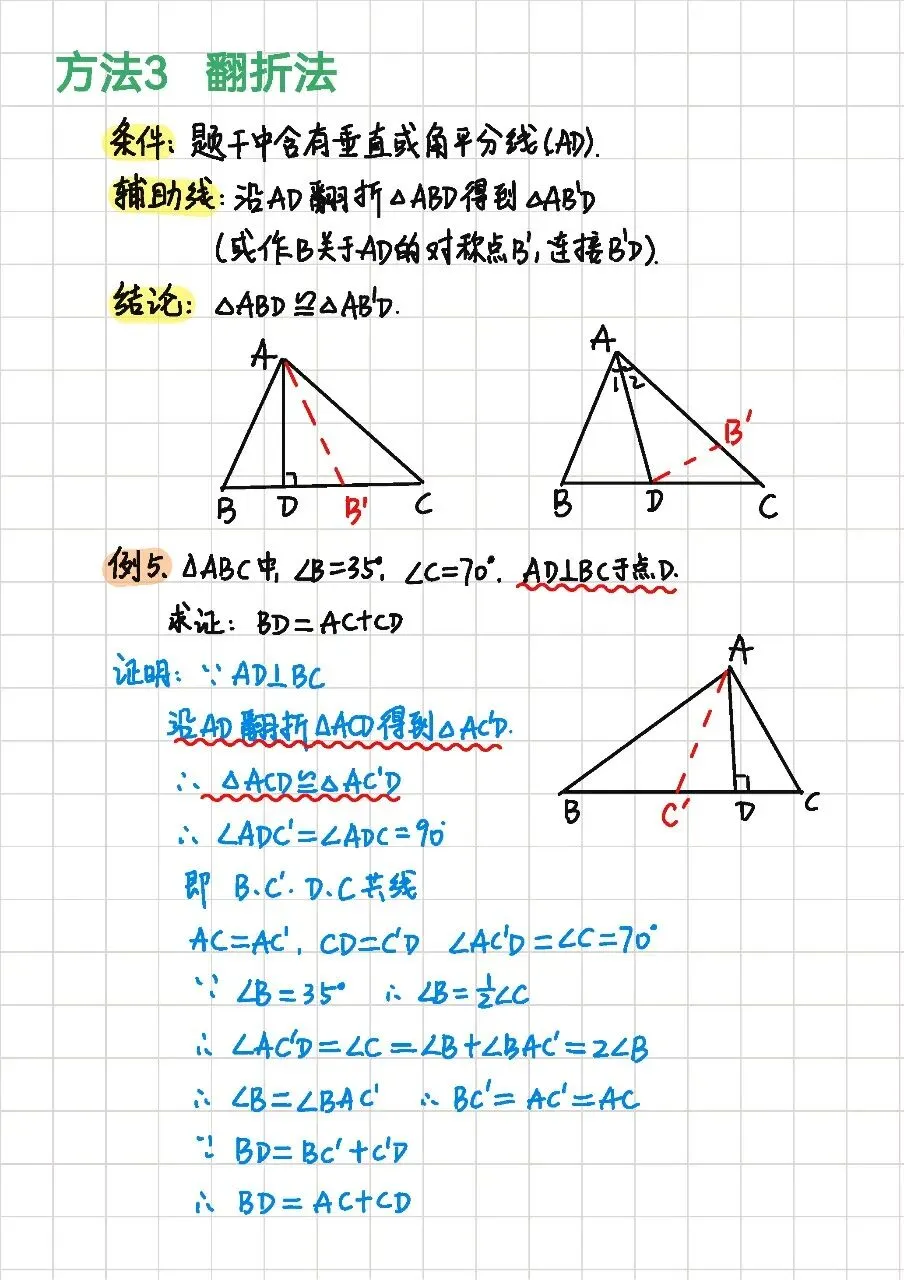 方法3 翻折法
条件：题干中含有垂直或角平分线(AD).
辅助线：沿AD翻折△ABD得到△AB'D
(或作B关于AD的对称点B'，连接B'D).
结论：△ABD≌△AB'D.
A
B D B' C
A
1 2
B'
B D C
例5、△ABC中，∠B=35°，∠C=70°，AD⊥BC于点D.
求证：BD=AC+CD
证明：∵AD⊥BC
沿AD翻折△ACD得到△AC'D.
∴△ACD≌△AC'D
∴∠ADC'=∠ADC=90°
即 B、C'、D、C共线
AC=AC'，CD=C'D ∠AC'D=∠C=70°
∵∠B=35° ∴∠B=½∠C
∴∠AC'D=∠C=∠B+∠BAC'=2∠B
∴∠B=∠BAC' ∴BC'=AC'=AC
∵BD=BC'+C'D
∴BD=AC+CD
A
B C' D C